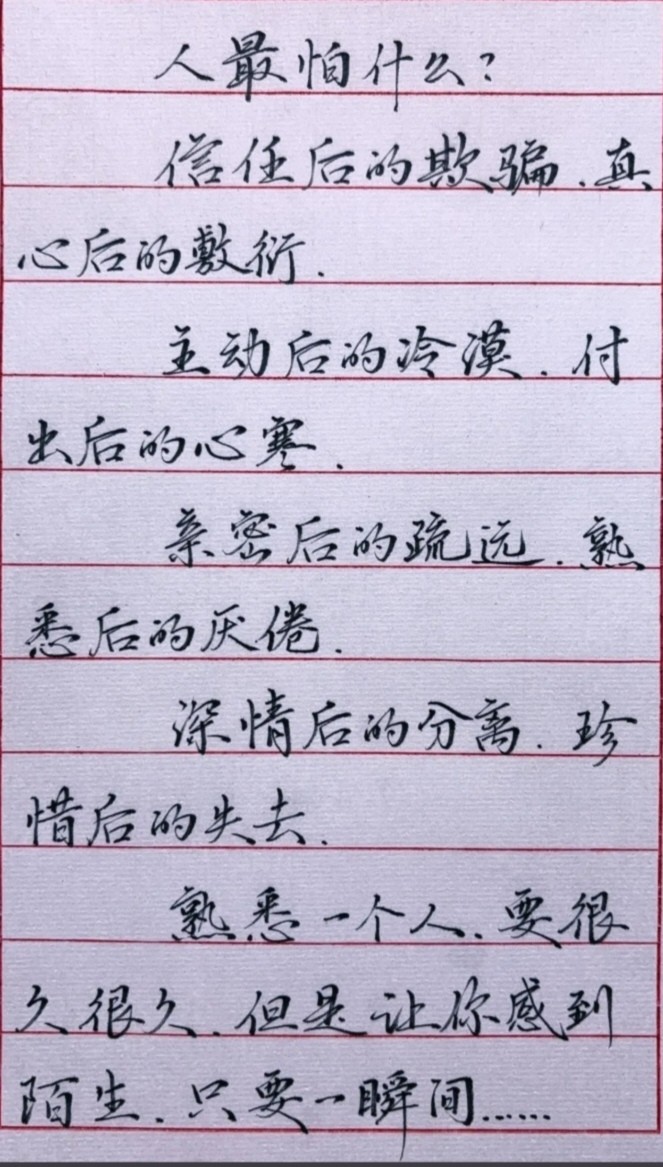 人最怕什么?
信任后的欺骗.真
心后的敷衍.
主动后的冷漠.付
出后的心寒.
亲密后的疏远.熟
悉后的厌倦.
深情后的分离.珍
惜后的失去.
熟悉一个人.要很
久很久.但是让你感到
陌生.只要一瞬间......